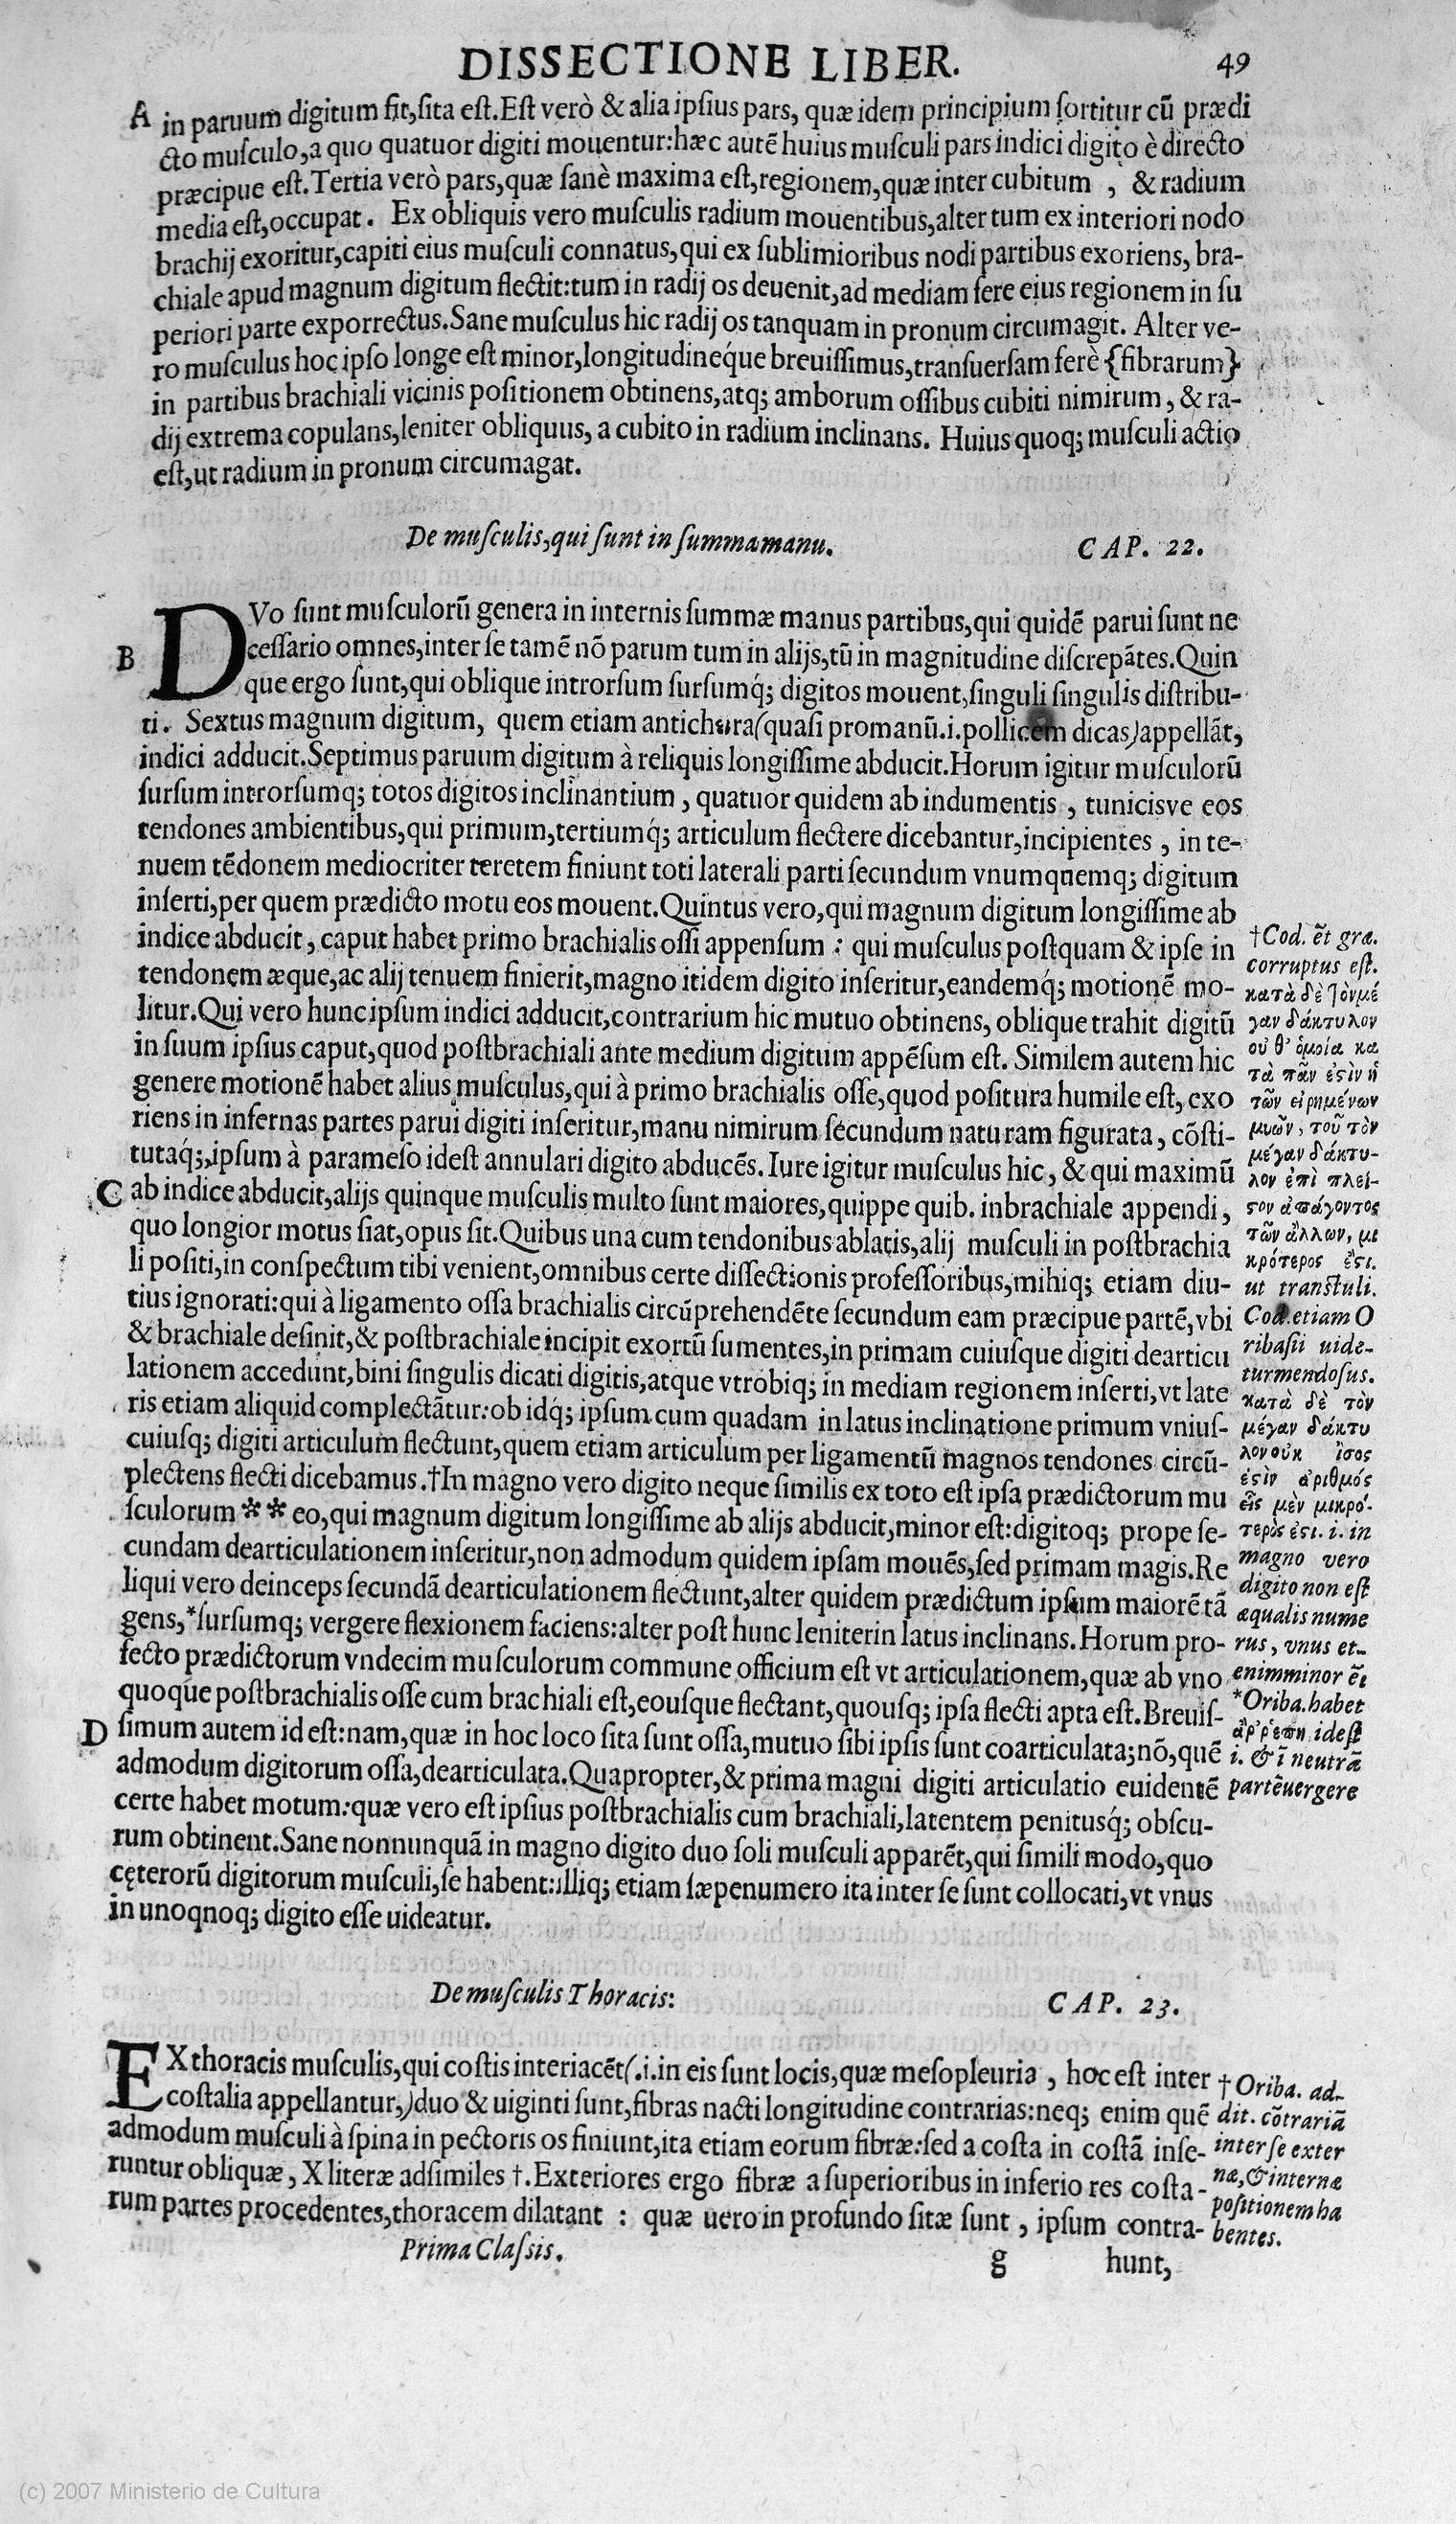 DISSECTIONE LIBER. 49
A in paruum digitum fit,sita est.Est verò & alia ipsius pars, quæ idem principium sortitur cũ prædi
cto musculo,a quo quatuor digiti mouentur:hæc autẽ huius musculi pars indici digito è directo
præcipue est.Tertia verò pars,quæ sanè maxima est,regionem,quæ inter cubitum , & radium
media est,occupat. Ex obliquis vero musculis radium mouentibus,alter tum ex interiori nodo
brachij exoritur,capiti eius musculi connatus,qui ex sublimioribus nodi partibus exoriens, bra-
chiale apud magnum digitum flectit:tum in radij os deuenit,ad mediam fere eius regionem in su
periori parte exporrectus.Sane musculus hic radij os tanquam in pronum circumagit. Alter ve-
ro musculus hoc ipso longe est minor,longitudineq́ue breuissimus,transuersam ferè {fibrarum}
in partibus brachiali vicinis positionem obtinens,atq; amborum ossibus cubiti nimirum, & ra-
dij extrema copulans,leniter obliquus, a cubito in radium inclinans. Huius quoq; musculi actio
est,ut radium in pronum circumagat.
De musculis,qui sunt in summa manu. CAP. 22.
DVo sunt musculorũ genera in internis summæ manus partibus,qui quidẽ parui sunt ne
B cessario omnes,inter se tamẽ nõ parum tum in alijs,tũ in magnitudine discrepãtes.Quin
que ergo sunt,qui oblique introrsum sursumq́; digitos mouent,singuli singulis distribu-
ti. Sextus magnum digitum, quem etiam antichira(quasi promanũ.i.pollicem dicas)appellãt,
indici adducit.Septimus paruum digitum à reliquis longissime abducit.Horum igitur musculorũ
sursum introrsumq; totos digitos inclinantium , quatuor quidem ab indumentis , tunicisve eos
tendones ambientibus,qui primum,tertiumq́; articulum flectere dicebantur,incipientes , in te-
nuem tẽdonem mediocriter teretem finiunt toti laterali parti secundum vnumqnemq; digitum
inserti,per quem prædicto motu eos mouent.Quintus vero,qui magnum digitum longissime ab
indice abducit, caput habet primo brachialis ossi appensum : qui musculus postquam & ipse in
tendonem æque,ac alij tenuem finierit,magno itidem digito inseritur,eandemq́; motionẽ mo-
litur.Qui vero hunc ipsum indici adducit,contrarium hic mutuo obtinens, oblique trahit digitũ
in suum ipsius caput,quod postbrachiali ante medium digitum appẽsum est. Similem autem hic
genere motionẽ habet alius musculus,qui à primo brachialis osse,quod positura humile est, exo
riens in infernas partes parui digiti inseritur,manu nimirum secundum naturam figurata, cõsti-
tutaq́;,ipsum à parameso idest annulari digito abducẽs. Iure igitur musculus hic, & qui maximũ
C ab indice abducit,alijs quinque musculis multo sunt maiores,quippe quib. in brachiale appendi,
quo longior motus fiat,opus sit.Quibus una cum tendonibus ablatis,alij musculi in postbrachia
li positi,in conspectum tibi venient,omnibus certe dissectionis professoribus,mihiq; etiam diu-
tius ignorati:qui à ligamento ossa brachialis circũprehendẽte secundum eam præcipue partẽ,vbi
& brachiale desinit,& postbrachiale incipit exortũ sumentes,in primam cuiusque digiti dearticu
lationem accedunt,bini singulis dicati digitis,atque vtrobiq; in mediam regionem inserti,vt late
ris etiam aliquid complectãtur:ob idq́; ipsum cum quadam in latus inclinatione primum vnius-
cuiusq; digiti articulum flectunt,quem etiam articulum per ligamentũ magnos tendones circũ-
plectens flecti dicebamus.†In magno vero digito neque similis ex toto est ipsa prædictorum mu
sculorum ** eo,qui magnum digitum longissime ab alijs abducit,minor est:digitoq; prope se-
cundam dearticulationem inseritur,non admodum quidem ipsam mouẽs,sed primam magis.Re
liqui vero deinceps secundã dearticulationem flectunt,alter quidem prædictum ipsum maiorẽ tã
gens,*sursumq; vergere flexionem faciens:alter post hunc leniter in latus inclinans.Horum pro-
fecto prædictorum vndecim musculorum commune officium est vt articulationem,quæ ab vno
quoque postbrachialis osse cum brachiali est,eousque flectant,quousq; ipsa flecti apta est.Breuis-
D simum autem id est:nam,quæ in hoc loco sita sunt ossa,mutuo sibi ipsis sunt coarticulata;nõ,quẽ
admodum digitorum ossa,dearticulata.Quapropter,& prima magni digiti articulatio euidentẽ
certe habet motum:quæ vero est ipsius postbrachialis cum brachiali,latentem penitusq́; obscu-
rum obtinent.Sane nonnunquã in magno digito duo soli musculi apparẽt,qui simili modo,quo
cęterorũ digitorum musculi,se habent:illiq; etiam sæpenumero ita inter se sunt collocati,vt vnus
in unoqnoq; digito esse uideatur.
†Cod. ẽt græ.
corruptus est.
κατὰ δὲ τὸν μέ
γαν δάκτυλον
οὐ θ' ὁμοία κα
τὰ πᾶν ἐστὶν ἡ
τῶν εἰρημένων
μυῶν, τοῦ τὸν
μέγαν δάκτυ-
λον ἐπὶ πλεί-
στον ἀπάγοντος
τῶν ἄλλων, μι
κρότερος ἔστι.
ut transtuli.
Cod.etiam O
ribasii uide-
tur mendosus.
κατὰ δὲ τὸν
μέγαν δάκτυ
λον οὐκ ἴσος
ἐστὶν ἀριθμός
εἷς μὲν μικρό-
τερός ἐστι. i. in
magno vero
digito non est
æqualis nume
rus, vnus et-
enim minor ẽt
*Oriba. habet
idest
i. & ĩ neutrã
partẽ uergere
De musculis Thoracis: CAP. 23.
EX thoracis musculis,qui costis interiacẽt(.i.in eis sunt locis,quæ mesopleuria , hoc est inter
costalia appellantur,)duo & uiginti sunt,fibras nacti longitudine contrarias:neq; enim quẽ
admodum musculi à spina in pectoris os finiunt,ita etiam eorum fibræ:sed a costa in costã inse-
runtur obliquæ, X literæ adsimiles †.Exteriores ergo fibræ a superioribus in inferio res costa-
rum partes procedentes,thoracem dilatant : quæ uero in profundo sitæ sunt , ipsum contra-
† Oriba. ad-
dit. cõtrariã
inter se exter
næ,& internæ
positionem ha
bentes.
Prima Classis. g hunt,
(c) 2007 Ministerio de Cultura